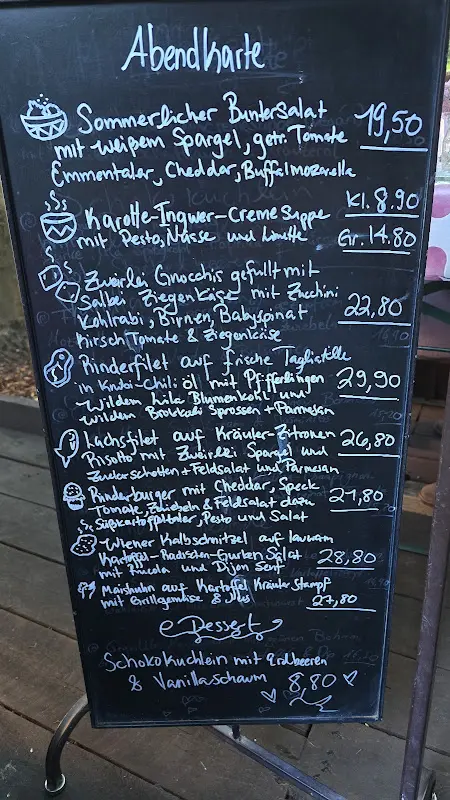 Abendkarte
Sommerlicher Buntersalat
mit weißem Spargel, getr. Tomate 19,50
Emmentaler, Cheddar, Buffalmozarella
Karotte-Ingwer-Creme Suppe Kl. 8.90
mit Pesto, Nüsse und Limette Gr. 14.80
Zweirlei Gnocchis gefüllt mit
Salbei Ziegenkäse mit Zucchini
Kohlrabi, Birnen, Babyspinat 22,80
Kirsch Tomate & Ziegenkäse
Rinderfilet auf frische Tagliatelle
in Knobi-Chili öl mit Pfifferlingen 29,90
Wildem lila Blumenkohl und
wildem Brokkoli Sprossen + Parmesan
Lachsfilet auf Kräuter-Zitronen 26,80
Risotto mit Zweirlei Spargel und
Zuckerschotten + Feldsalat und Parmesan
Rinderburger mit Cheddar, Speck
Tomate, Zwiebeln & Feldsalat dazu 21,80
Süßkartoffeltaler, Pesto und Salat
Wiener Kalbschnitzel auf lauwarm
Kartoffel-Radischen-Gurken Salat 28,80
mit und Dijon Senf
Maishuhn auf Kartoffel Kräuter Stampf
mit Grillgemüse & Jus 27,80
Dessert
Schokoküchlein mit Erdbeeren
& Vanillaschaum 8,80